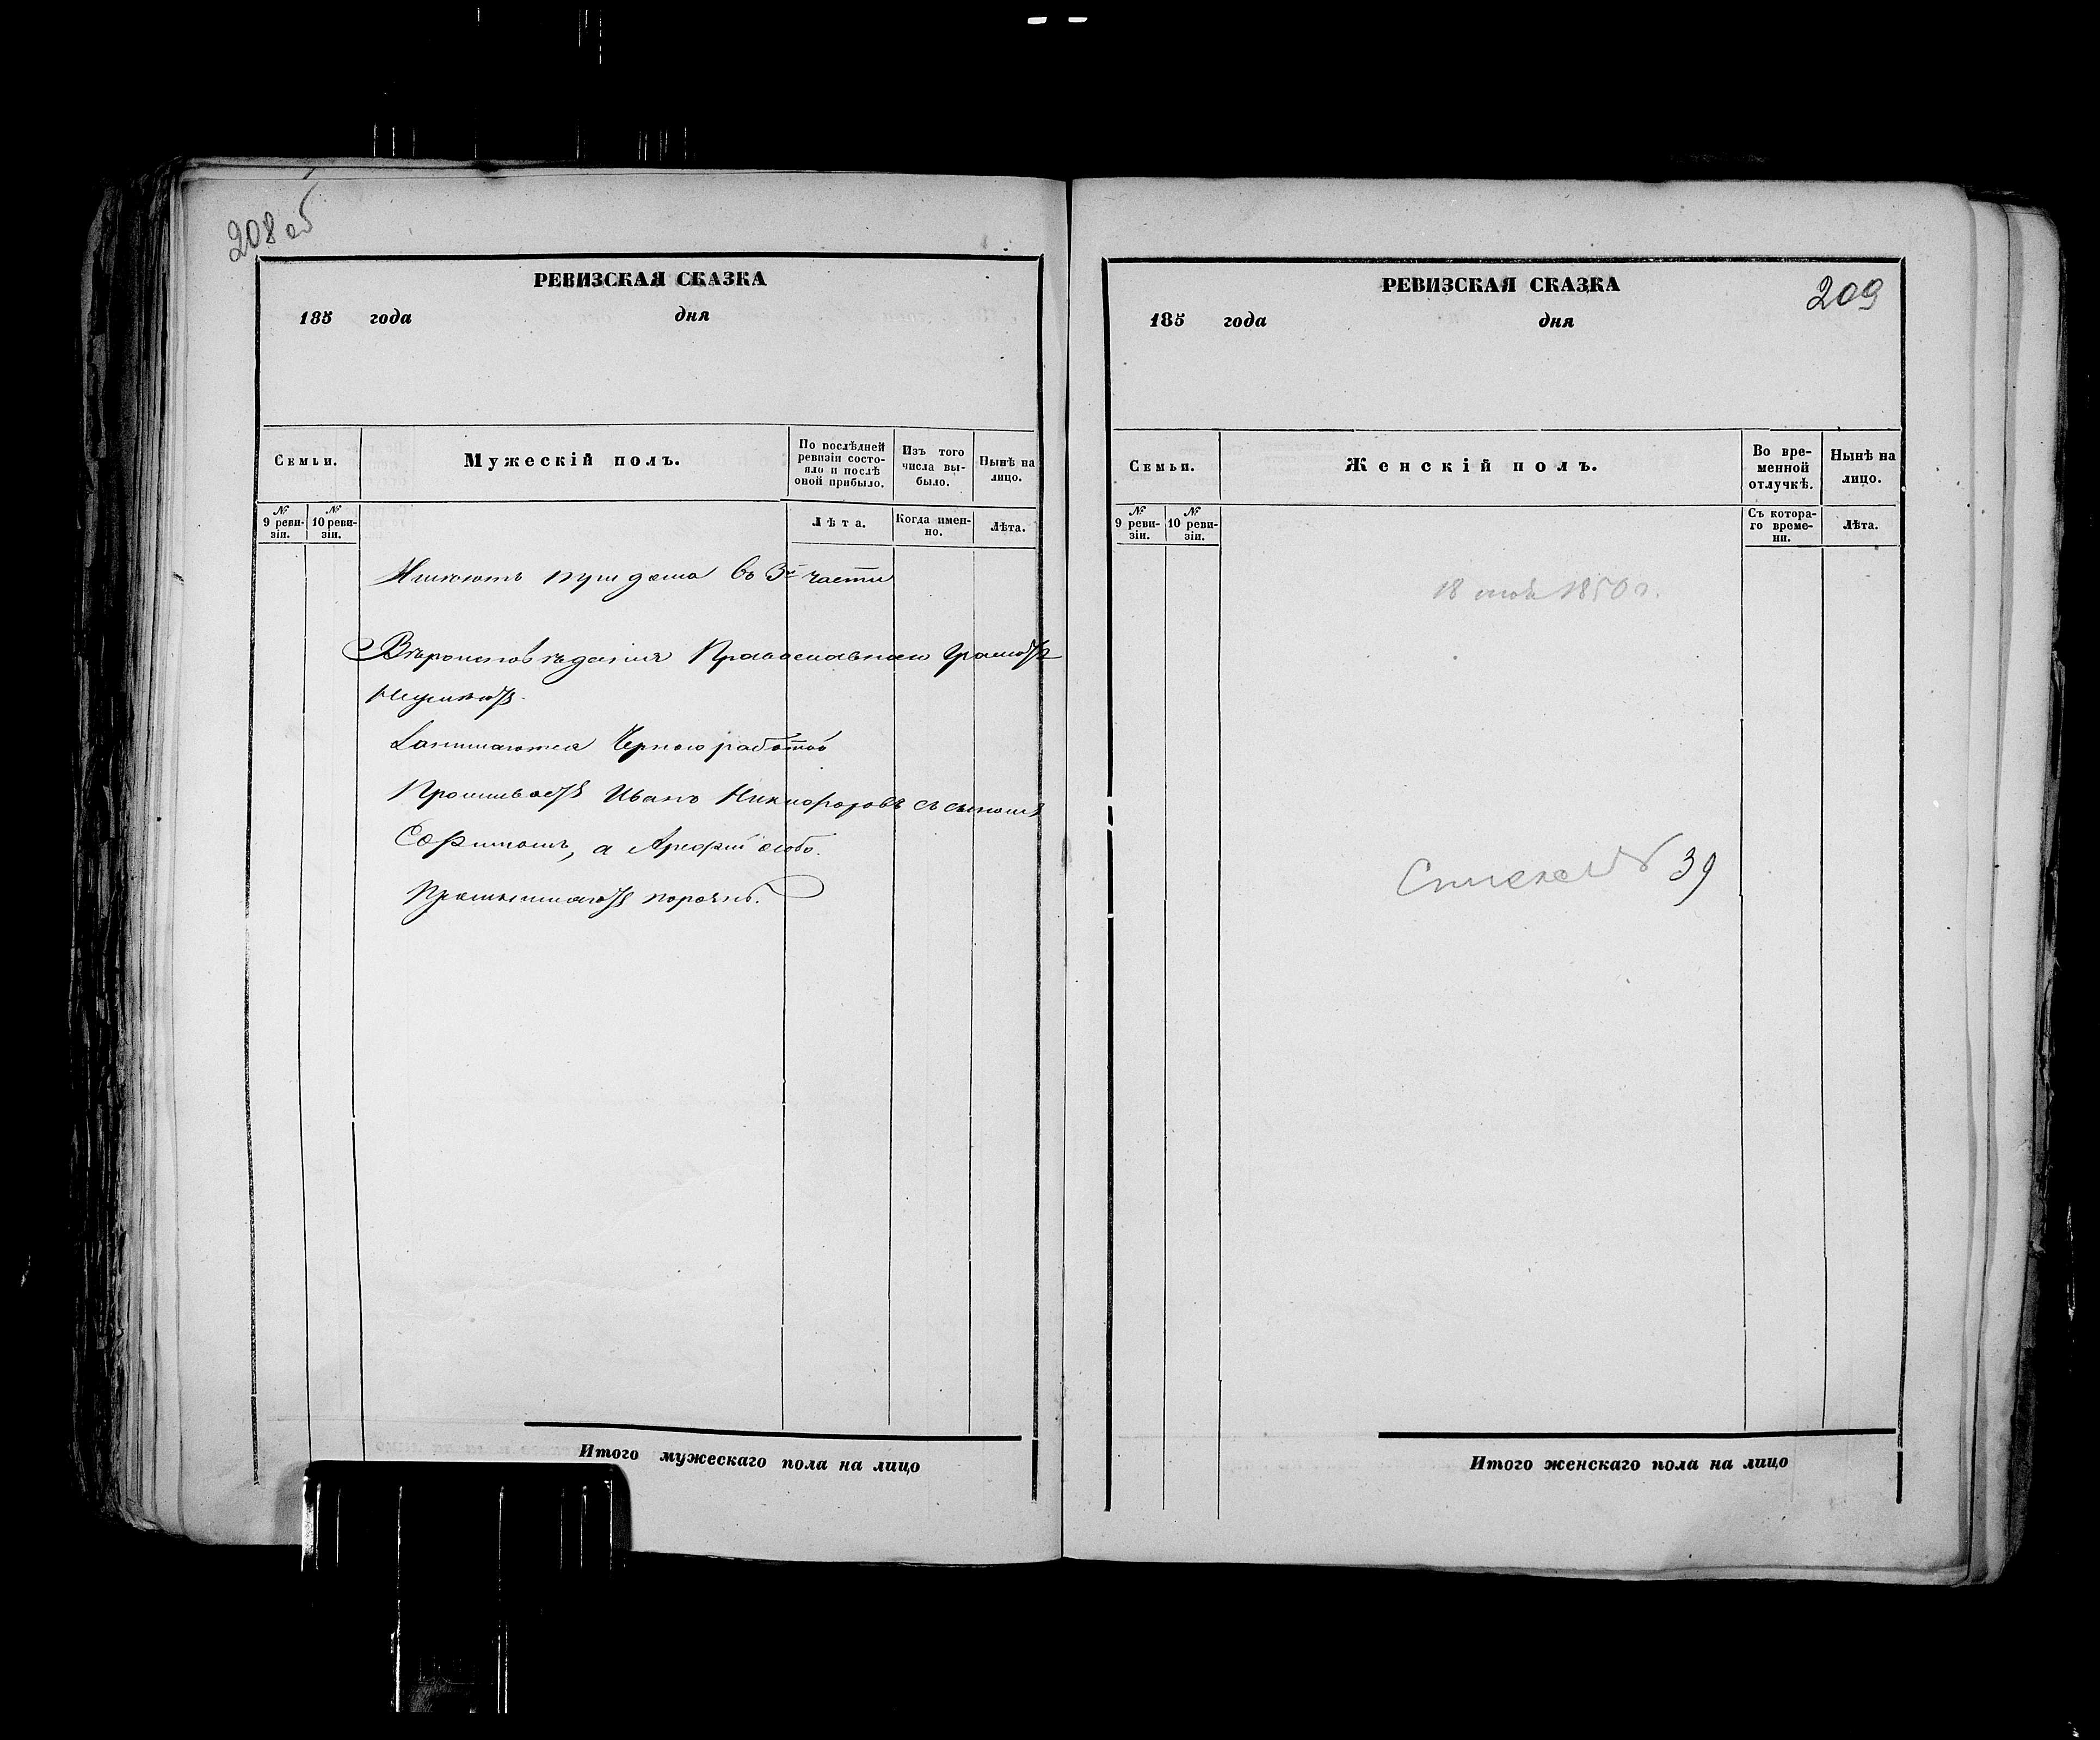 208 об
РЕВИЗСКАЯ СКАЗКА
185 года дня
Семьи.
Мужескій полъ.
По послѣдней ревизіи состояло и послѣ оной прибыло.
Изъ того числа выбыло.
Нынѣ на лицо.
№ 9 ревизіи.
№ 10 ревизіи.
Лѣта.
Когда именно.
Лѣта.
Имѣютъ три дома въ 3й части
Вѣроисповѣданія Православнаго Грамотѣ
неумѣютъ.
Занимаются Черною работою
Проживаетъ Иванъ Никифоровъ съ сыномъ
а Арефій особо.
Итого мужескаго пола на лицо
209
РЕВИЗСКАЯ СКАЗКА
185 года дня
Семьи.
Женскій полъ.
Во временной отлучкѣ.
Нынѣ на лицо.
№ 9 ревизіи.
№ 10 ревизіи.
Съ котораго времени.
Лѣта.
18 1850 г.
39
Итого женскаго пола на лицо